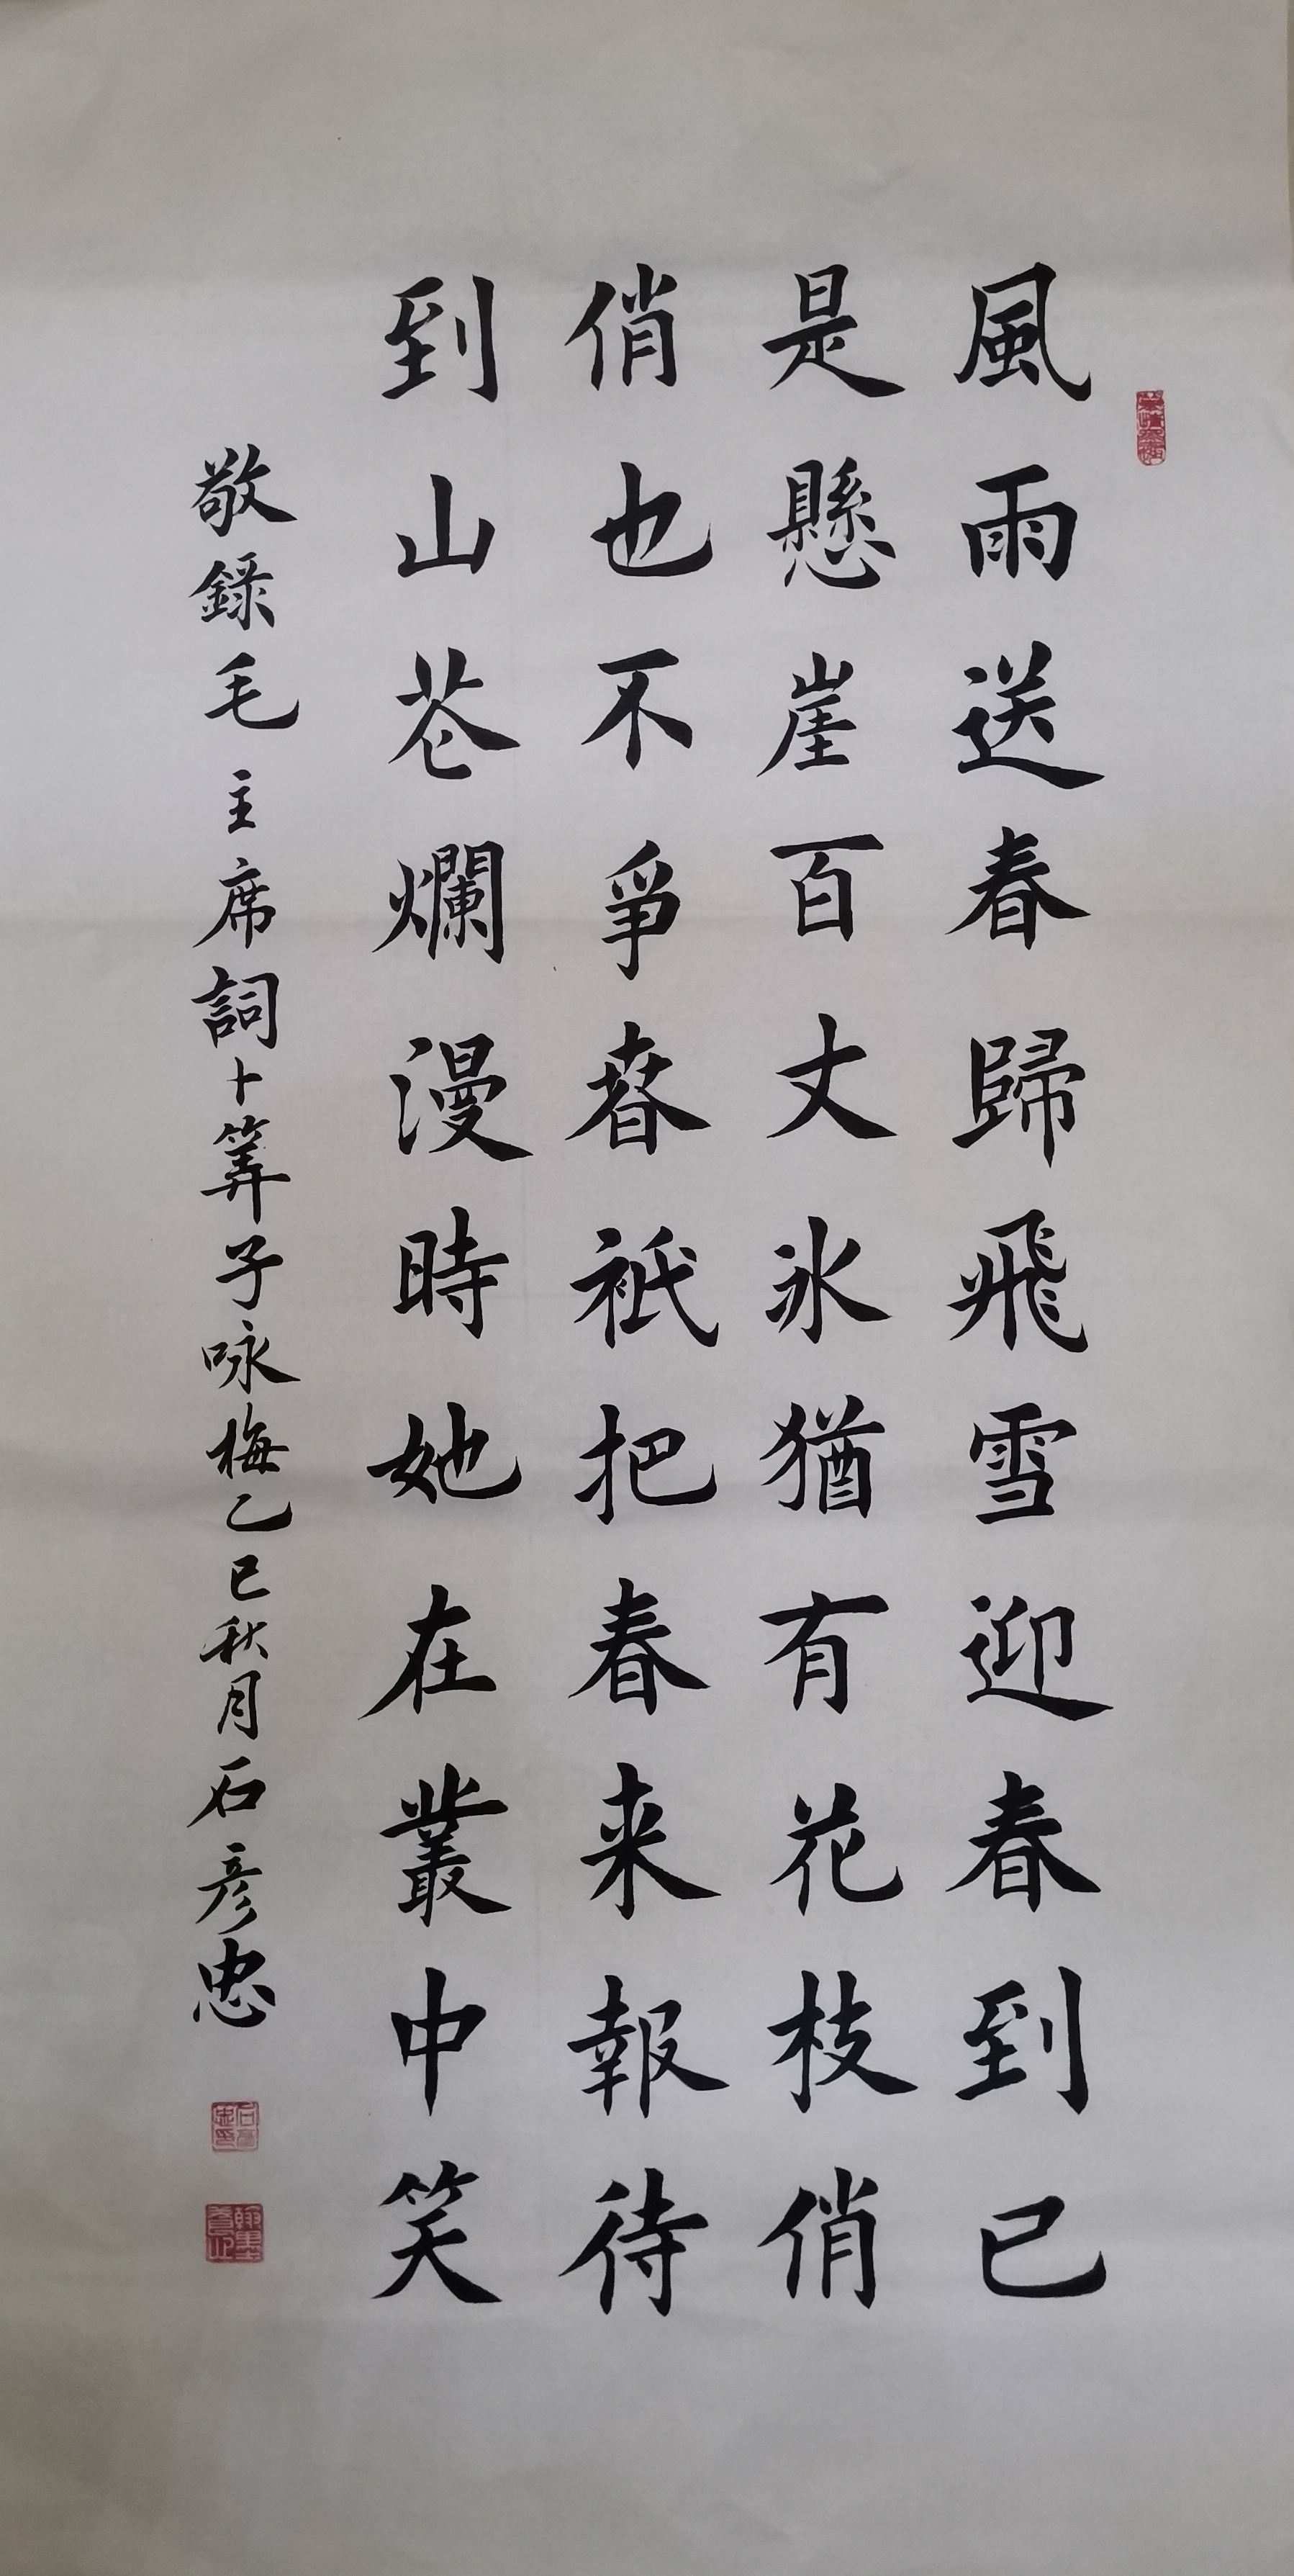 風雨送春歸飛雪迎春到已
是懸崖百丈冰猶有花枝俏
俏也不爭春祇把春来報待
到山花爛漫時她在叢中笑
敬錄毛主席詞卜筭子咏梅乙巳秋月石彦忠
石彦忠印